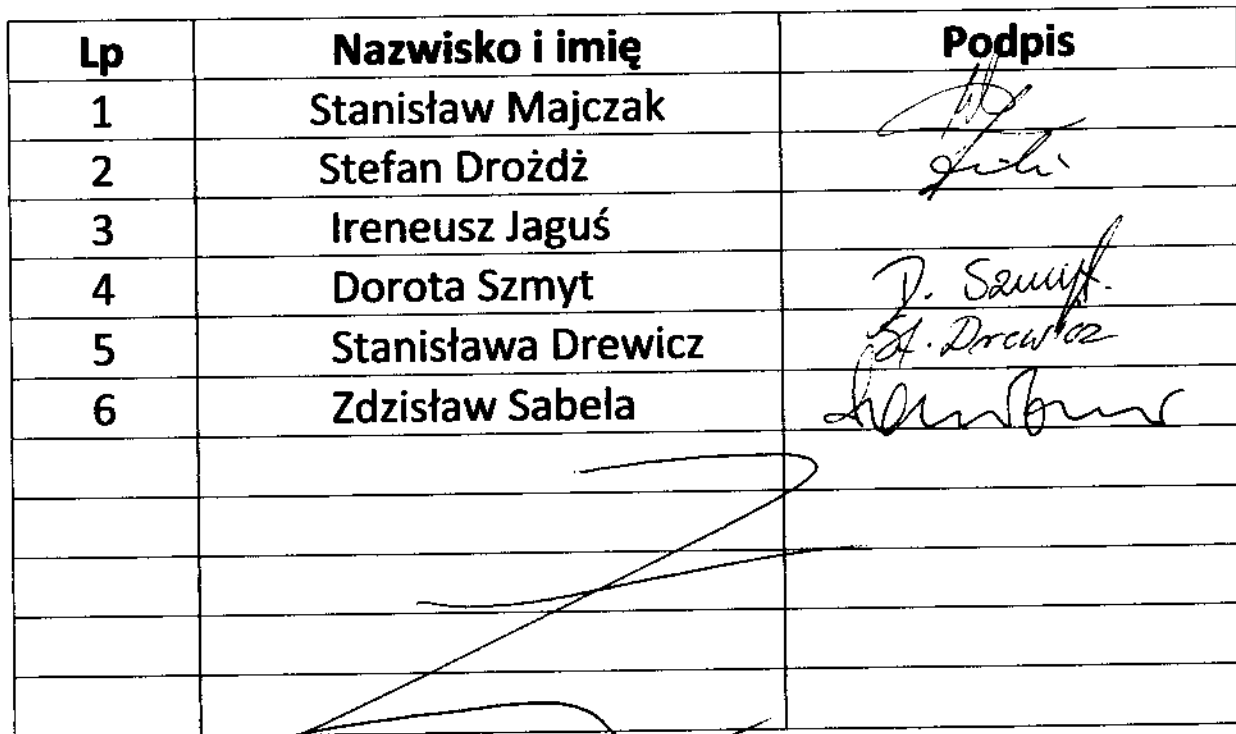 Lp Nazwisko i imię Podpis
1 Stanisław Majczak
2 Stefan Drożdż
3 Ireneusz Jaguś
4 Dorota Szmyt D. Szmyt.
5 Stanisława Drewicz St. Drewicz
6 Zdzisław Sabela